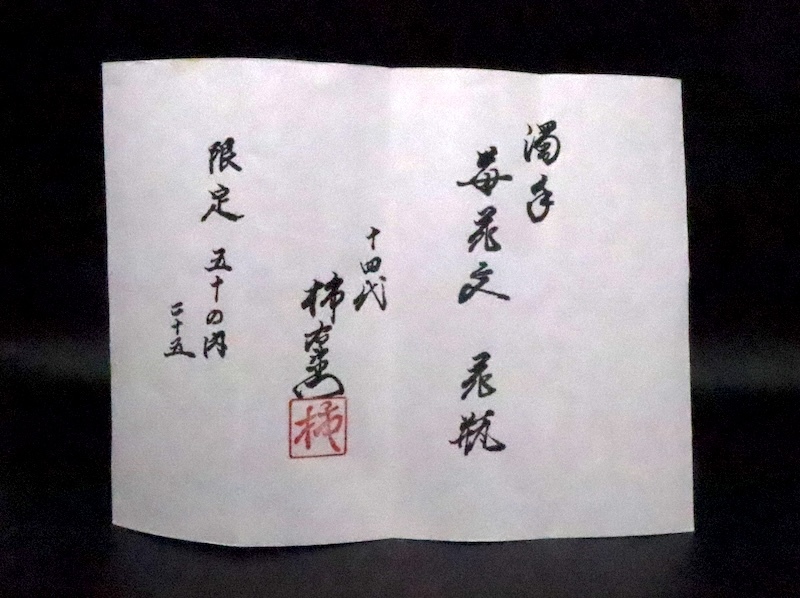 濁手
苺花文　花瓶
十四代
柿右衛門
柿
限定　五十の内
二十五